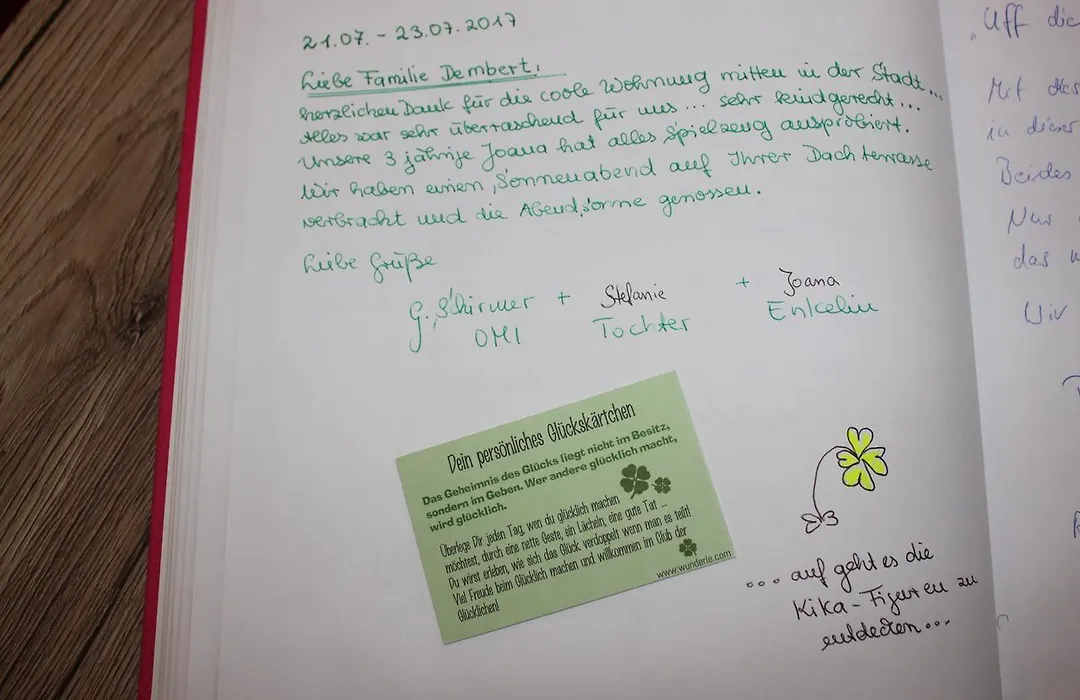 21.07. - 23.07.2017
Liebe Familie Dembert,
herzlichen Dank für die coole Wohnung mitten in der Stadt...
Alles war sehr überraschend für uns... sehr kindgerecht...
Unsere 3 jährige Joana hat alles Spielzeug ausprobiert.
Wir haben einen Sonnenabend auf Ihrer Dachterrasse
verbracht und die Abendsonne genossen.
Liebe Grüße
G. Schirmer + Stefanie + Joana
OMI Tochter Enkelin
Dein persönliches Glückskärtchen
Das Geheimnis des Glücks liegt nicht im Besitz,
sondern im Geben. Wer andere glücklich macht,
wird glücklich.
Überlege Dir jeden Tag, wen du glücklich machen
möchtest, durch eine nette Geste, ein Lächeln, eine gute Tat ...
Du wirst erleben, wie sich das Glück verdoppelt wenn man es teilt!
Viel Freude beim Glücklich machen und willkommen im Club der
Glücklichen!
www.wunderle.com
... auf geht es die
Kika-Figuren zu
entdecken...
Uff die
Mit
in dieser
Beides
Nur
das